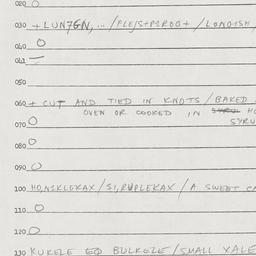 020 O
030 + LUN7GN, ... / PLEJS+PSROD+ / LONDISH
040 O
041 —
050
060 + CUT AND TIED IN KNOTS / BAKED
OVEN OR COOKED IN HO
SYRU
070 O
080 O
090 O
100 HO,NIKLEKAX / SI,RUPLEKAX / A SWEET CA
110 O
120 O
130 KUKELE BULKELE / SMALL